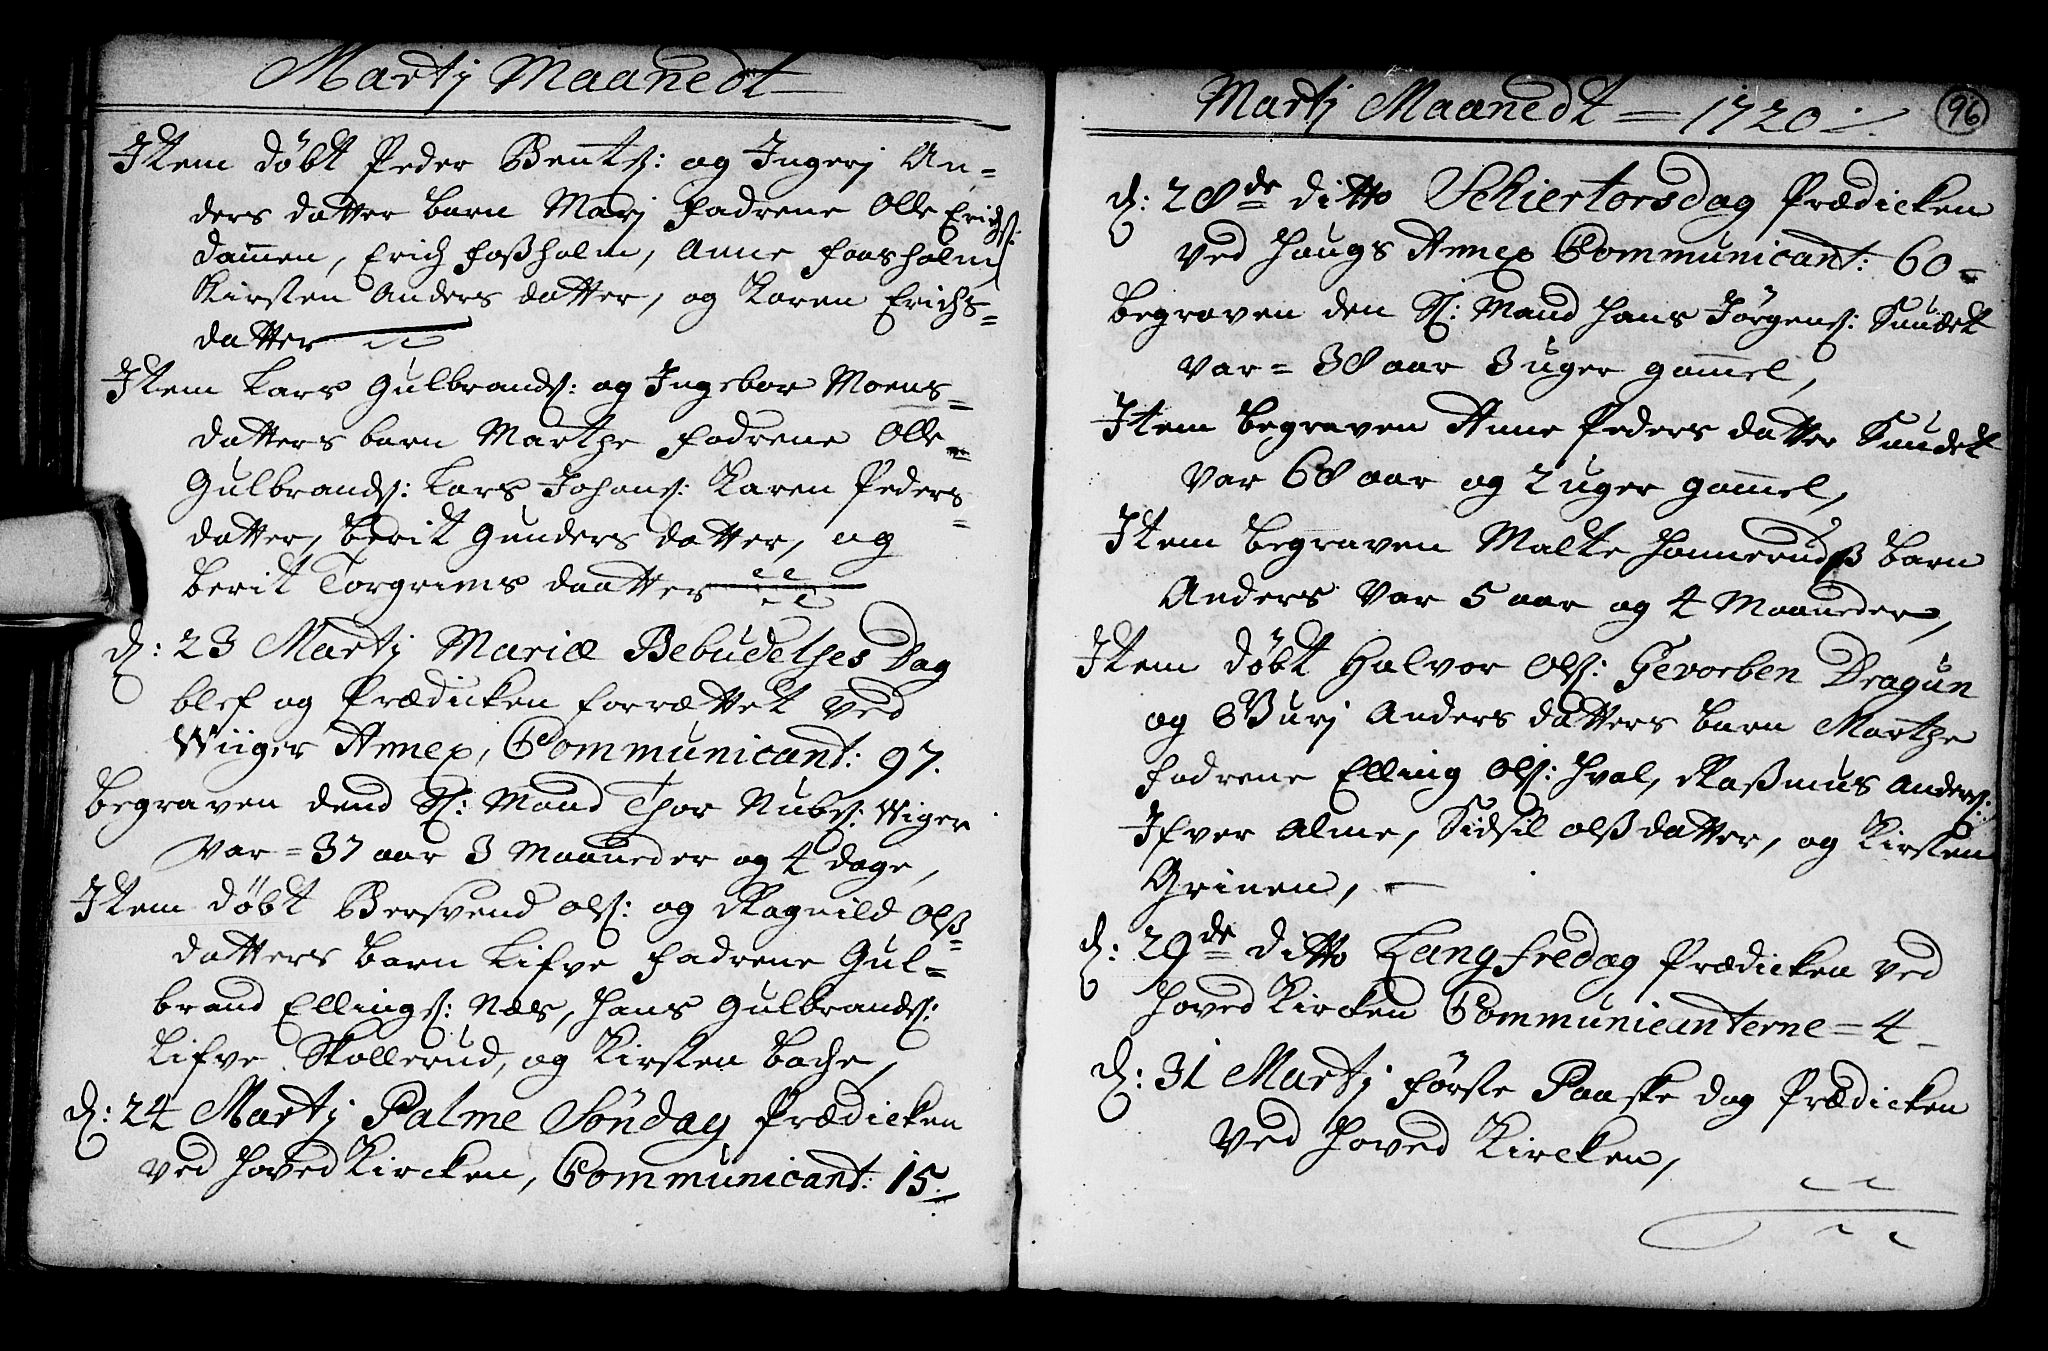 Martj Maanedt
Item döbt Peder Bentz: og Ingerj An=
ders datter barn Marj fadrene Olle Erichs:
dammen, Erich Foßholm, Anne Faasholm,
Kirsten Anders datter, og Karen Erichs=
datter
Item Lars Gulbrands: og Ingebor Moens=
datters barn Marthe fadrene Olle
Gulbrands: Lars Johans: Karen Peders=
datter, Berit Gunders datter, og
Berit Torgrims daatter
d: 23 Martj Mariæ Bebudelses Dag
blef og Prædicken forrættet ved
Wiiger Annex, Communicant: 97.
Begraven dend Sl: Mand Thor Wiger
var = 37 aar 3 Maaneder og 4 dage,
Item döbt Bersvend Ols: og Ragnild Olß=
datters barn Lisve fadrene Gul=
brand Ellings: Næs, Hans Gulbrands:
Lisve Skollerud, og Kirsten Bache,
d: 24 Martj Palme Söndag Prædicken
ved Hoved Kircken, Communicant: 15.
Martj Maanedt = 1720
96
d: 28de ditto Schiertorsdag Prædicken
ved Haugs Annex Communicant: 60 =
Begraven den Sl: Mand Hans Jörgens: Sundet
var = 38 aar 3 uger gammel,
Item Begraven Anne Peders datter Sundet
var 68 aar og 2 uger gammel,
Item Begraven Malte Hannerudß barn
Anders var 5 aar og 4 Maaneder,
Item döbt Halvor Ols: Gevorben Dragun
og Gurj Anders datters barn Marthe
fadrene Elling Ols: Hval, Raßmus Anders:
Ifver Alme, Sidsil Olß datter, og Kirsten
Grinen,
d: 29de ditto Langfredag Prædicken ved
Hoved Kircken Communicanterne = 4
d: 31 Martj förste Paaske dag Prædicken
ved Hoved Kircken,